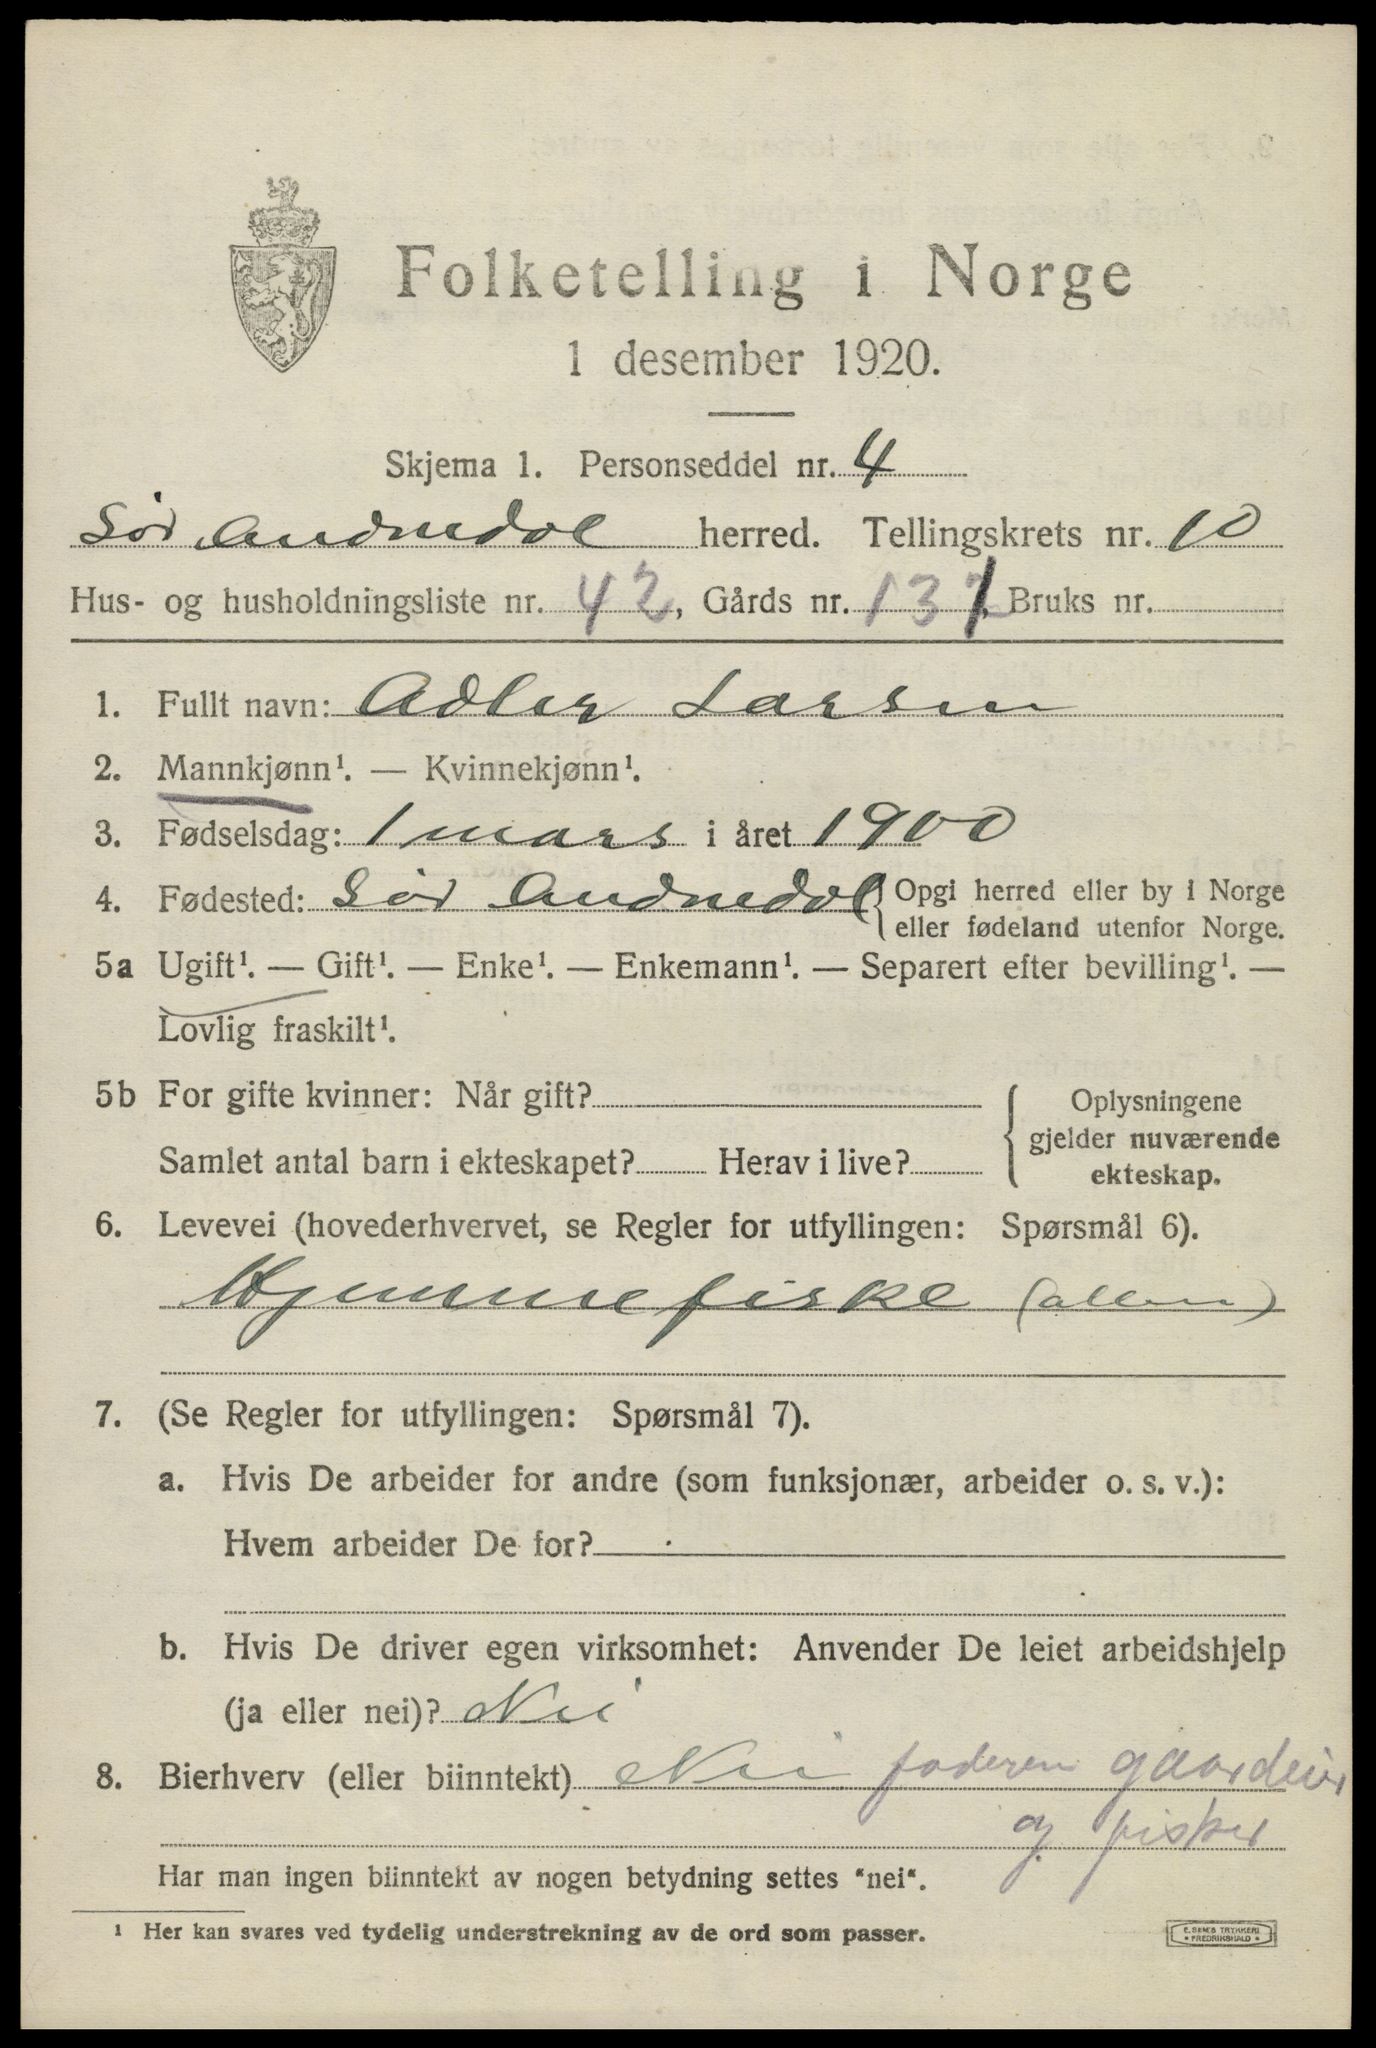 Folketelling i Norge
1 desember 1920.
Skjema 1. Personseddel nr. 4
Sør Audnedal herred. Tellingskrets nr. 10
Hus- og husholdningsliste nr. 42, Gårds nr. 13 Bruks nr.
1. Fullt navn: Adler Larsen
2. Mannkjønn¹. — Kvinnekjønn¹.
3. Fødselsdag: 1 mars i året 1900
4. Fødested: Sør Audnedal { Opgi herred eller by i Norge
eller fødeland utenfor Norge.
5a Ugift¹. — Gift¹. — Enke¹. — Enkemann¹. — Separert efter bevilling¹. —
Lovlig fraskilt¹.
5b For gifte kvinner: Når gift? { Oplysningene
gjelder nuværende
Samlet antal barn i ekteskapet? Herav i live?
ekteskap.
6. Levevei (hovederhvervet, se Regler for utfyllingen: Spørsmål 6).
Hjemmefiske (allen)
7. (Se Regler for utfyllingen: Spørsmål 7).
a. Hvis De arbeider for andre (som funksjonær, arbeider o. s. v.):
Hvem arbeider De for?
b. Hvis De driver egen virksomhet: Anvender De leiet arbeidshjelp
(ja eller nei)? Nei
8. Bierhverv (eller biinntekt) Nei faderen gaardeier
og fisker
Har man ingen biinntekt av nogen betydning settes "nei".
¹ Her kan svares ved tydelig understrekning av de ord som passer.
E. SEM'S TRYKKERI
FREDRIKSHALD